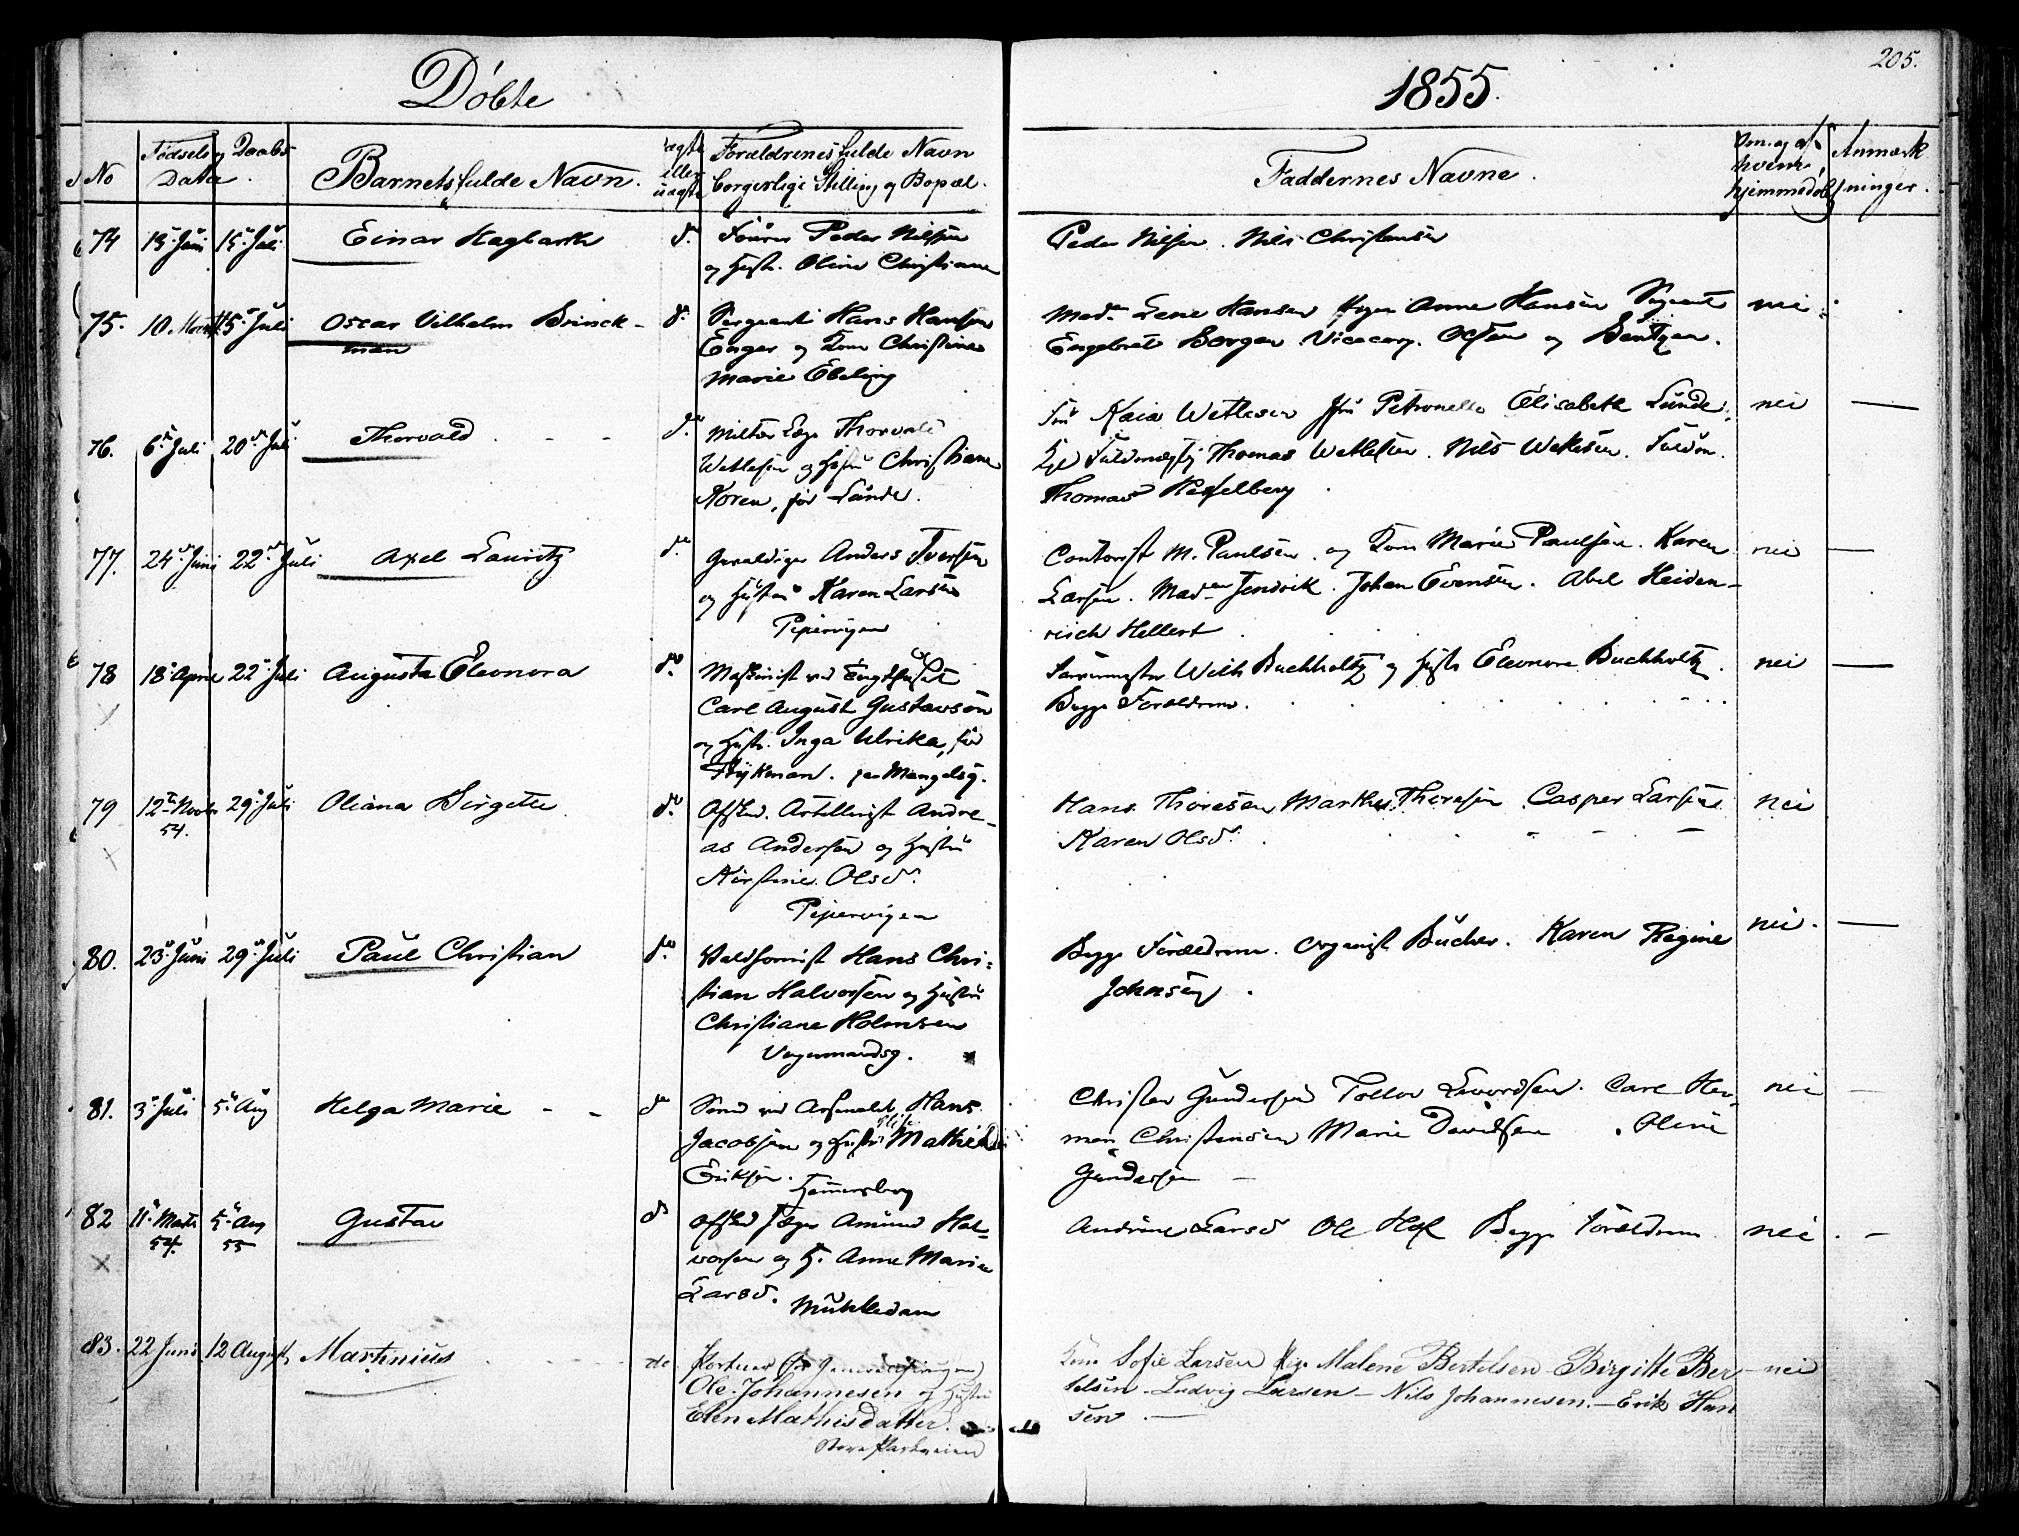 Döbte
1855.
205.
No
Fødsels og Daabs
Data.
Barnets fulde Navn.
ægte eller uægte
Forældrenes fulde Navn
borgerlige Stilling og Bopæl.
Faddernes Navne.
Om og af hvem hjemmedøbt
Anmærkninger.
74 15 Juni 15 Juli Einar Hagbarth d. Peder Nilsen
og Hustr. Oline Christiane
Peder Nilsen. Nils Christensen
75. 10 Marts 15 Juli Oscar Vilhelm Brinck-
man
d. Sergeant Hans Hansen
Enger og Kone Christine
Marie Ebeling
Mad. Lene Hansen Pigen Anne Hansen Sergeant nei
Engebret Borgen Vicecorp. Olsen og Bentzen.
76. 6 Juli 20 Juli Thorvald
d. Militær Læge Thorvald
Wetlesen og Hustru Christiane
Koren, för Lunde.
Fru Kaia Wetlesen Petronelle Elisabeth Lunde. nei
Fuldmægtig Thomas Wetlesen. Nils Wetlesen. Fuldm.
Thomas Hesselberg
77. 24 Juni 22 Juli Axel Lauritz
d. Gevaldiger Anders Iversen
og Hustru Karen Larsen
Pipervigen
Contorist M. Paulsen. og Kone Marie Paulsen. Karen nei
Larsen. Mad. Johan Evensen. Abel Heiden-
reich Hellert
78 18 April 22 Juli Augusta Eleonora
d. Maskinist ved Tugthuset
Carl August Gustavson
og Hustr. Inga Ulrika, för
Mangelsg.
Wilh Buchholtz og Hustr Eleonora Buchholtz nei
Begge Forældrene.
79 12 Novbr 54. 29 Juli Oliana Birgitte
d. Afsked. Artillerist Andre-
as Andersen og Hustru
Kirstine Olsd.
Pipervigen
Hans Thoresen Markus Thoresen Casper Larsen nei
Karen Olsd.
80. 23 Juni 29 Juli Paul Christian
d. Valdhornist Hans Chri-
stian Halvorsen og Hustru
Christiane Holmsen
Vognmandsg.
Begge Forældrene. Organist Bücher. Karen Regine nei.
Johnsen.
81. 3 Juli 5 Aug Helga Marie
d. Smed ved Arsenalet Hans
Jacobsen og Hustru Elise Mathilde
Eriksen. Hammersborg
Christen Gundersen Tollev Sivertsen. Carl Her- nei
man Christensen Marie Davidsen. Oline
Gundersen
82 11 Marts 54. 5 Aug 55 Gustav
d Afsked Jæger Amund Hal-
vorsen og H. Anne Marie
Larsd. Mühledam
Andrine Larsd Ole Hof Begge Forældrene nei.
83. 22 Juni 12 August Martinius
do
Ole Johannesen og Hustru
Elen Mathisdatter.
Store Parkveien
Kone Sofie Larsen Pige Malene Bertelsen - Birgitte Ber- nei
telsen - Ludvig Larsen - Nils Johannesen. - Erik Han
sen. -